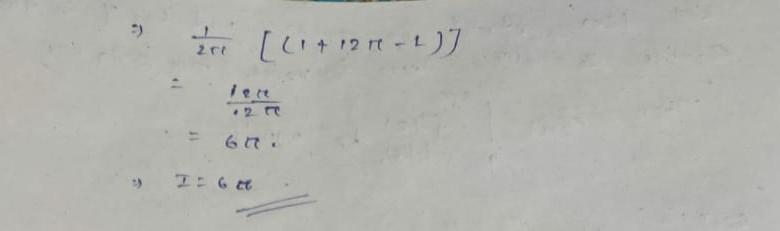 => 1/2π [(1 + 12π - 1)]
= 12π/2π
= 6π.
=> I = 6π